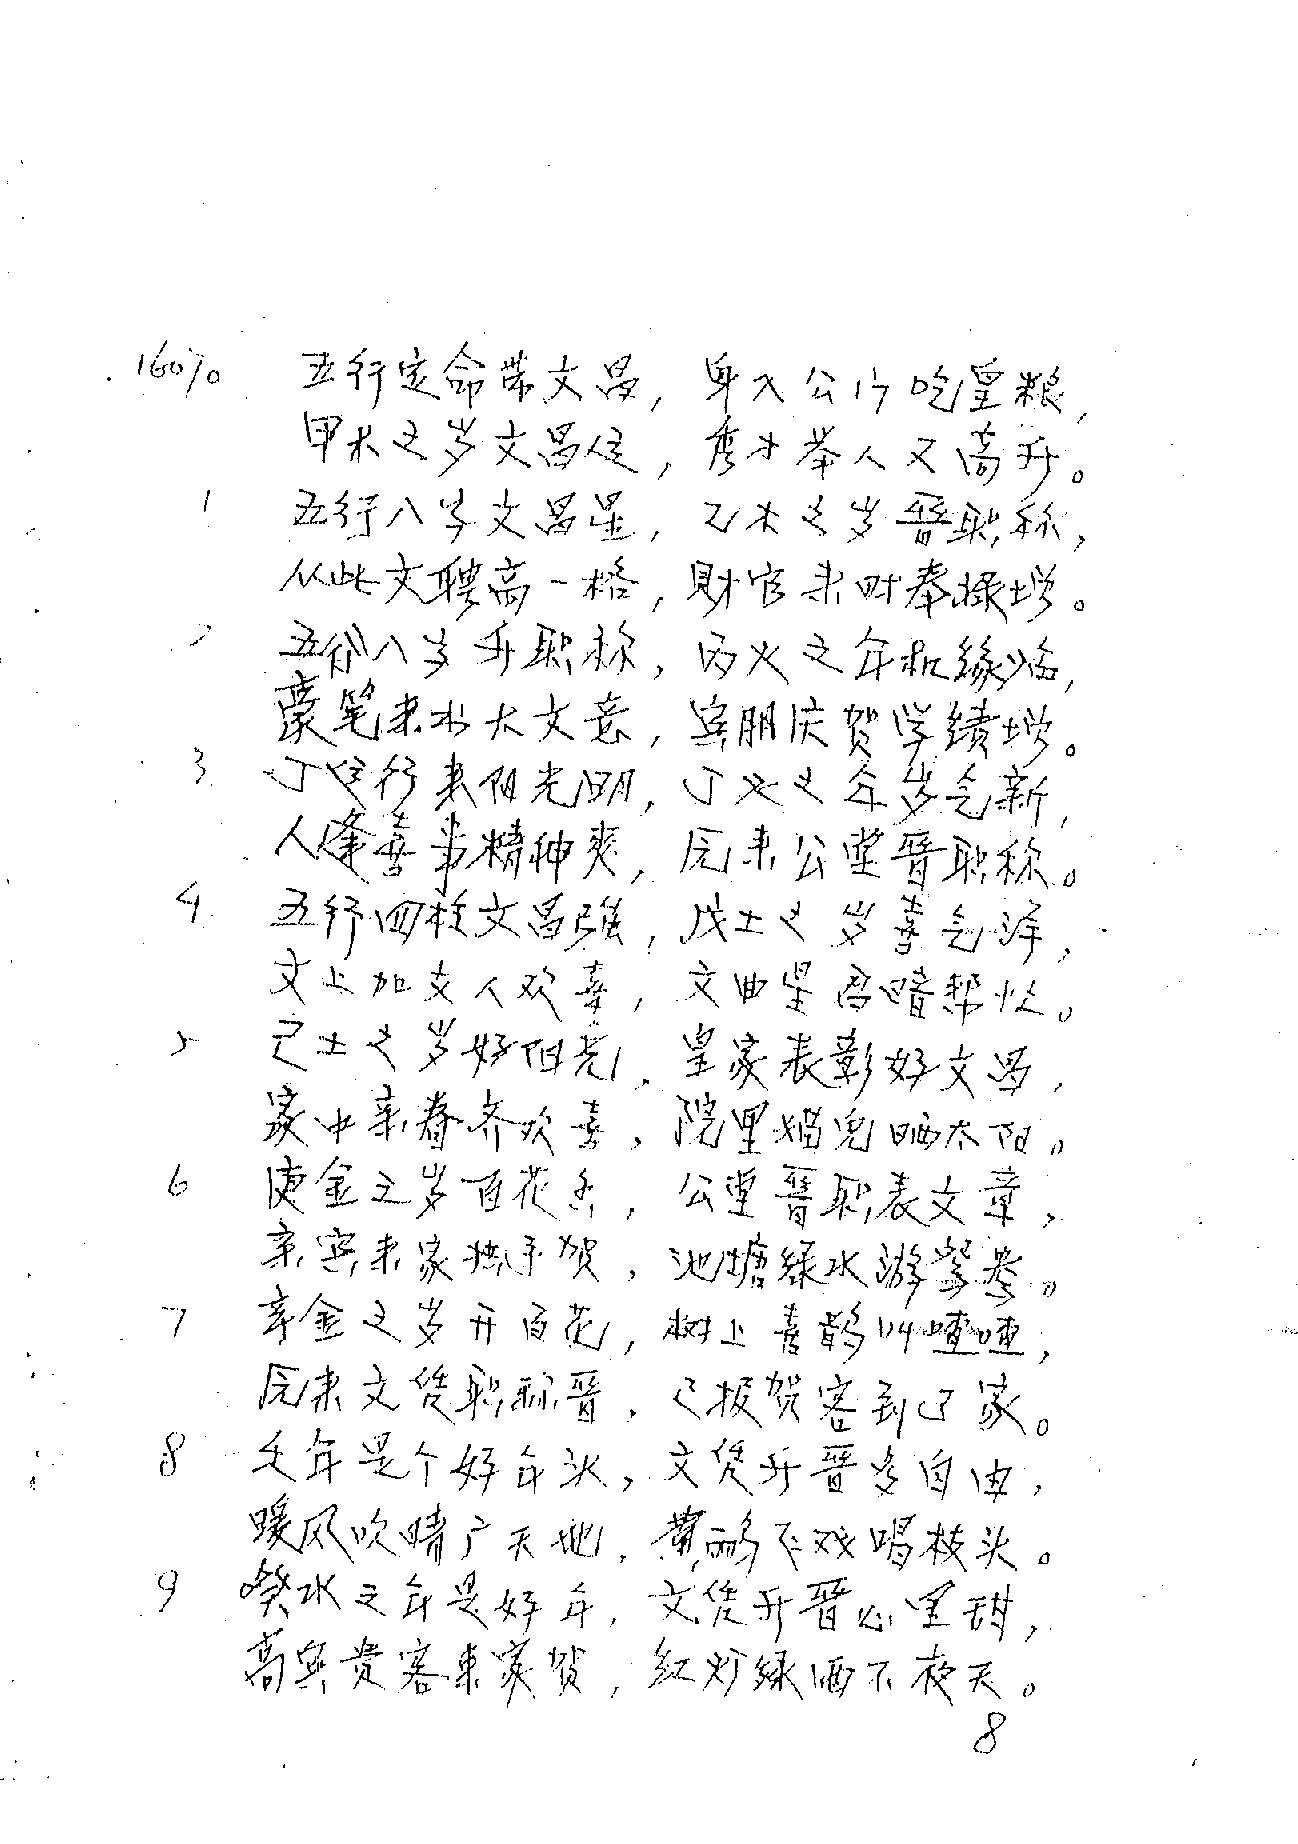 16070 五行定命带文昌，身入公门吃皇粮，
甲木之岁文昌位，秀才举人又高升。
1 五行八字文昌星，乙木之岁晋职称，
从此文聘高一格，财官来时奉禄增。
2 五行八字升职称，丙火之年机缘临，
蒙笔来水大文意，宾朋庆贺学绩增。
3 丁火行来阳光明，丁火之年岁气新，
人逢喜事精神爽，原来公堂晋职称。
4 五行四柱文昌强，戊土之岁喜气洋，
文上加文人欢喜，文曲星君暗帮忙。
5 己土之岁好阳光，皇家表彰好文昌，
家中亲眷齐欢喜，院里猫儿晒太阳。
6 庚金之岁百花香，公堂晋职表文章，
亲宾来家拱手贺，池塘绿水游鸳鸯。
7 辛金之岁开百花，树上喜鹊叫哑哑，
原来文凭职称晋，已报贺客到了家。
8 壬年是个好年头，文凭升晋多自由，
暖风吹晴广天地，黄鹂飞戏唱枝头。
9 癸水之年是好年，文凭升晋心里甜，
高宾贵客来家贺，红灯绿酒不夜天。
8